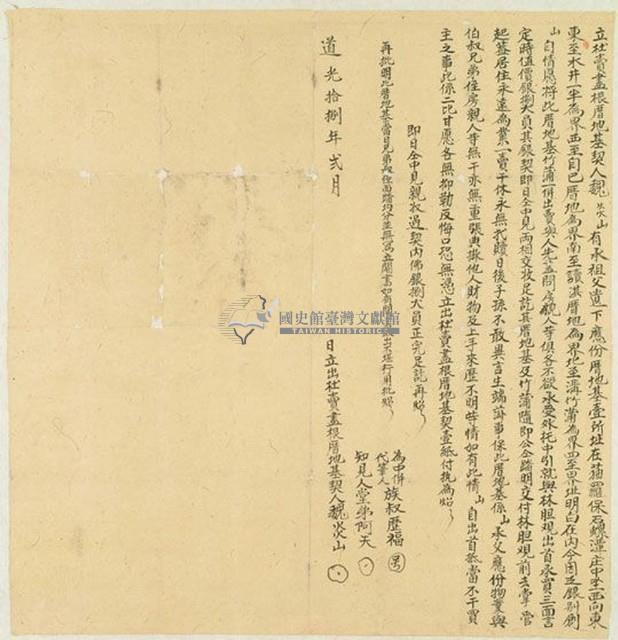 立杜賣盡根厝地基契人魏炎山有承祖父遺下應份厝地基壹所址在猫羅保石螺潭庄中坐西向東
東至水井一半為界西至自己厝地為界南至讀淇厝地為界北至溝竹蒲為界四至界址明白在內今因乏銀別創
山自情愿將此厝地基竹蒲一併出賣與人先盡問房親人等俱各不欲承受外托中引就與林胆观出首承買三面言
定時值價銀捌大員其銀契即日仝中見兩相交收足訖其厝地基及竹蒲隨即公仝踏明交付林胆观前去掌管
起盖居住永遠為業一賣千休永無找贖日後子孫不敢異言生端滋事保此厝地基係山承父應份物業與
伯叔兄弟侄房親人等無干亦無重張典掛他人財物及上手來歷不明等情如有此情山自出首抵當不干買
主之事此係二比甘愿各無抑勒反悔口恐無憑立出杜賣盡根厝地基契壹紙付執為炤
即日仝中見親收過契內佛銀捌大員正完足訖再炤
再批明此厝地基當日兄弟叔侄面踏均分並無為立鬮書如有鬮書出不堪行用批炤
為中併代筆人族叔歷福
知見人堂弟阿天
道光拾捌年弍月 日立出杜賣盡根厝地基契人魏炎山
國史館臺灣文獻館
TAIWAN HISTORICA